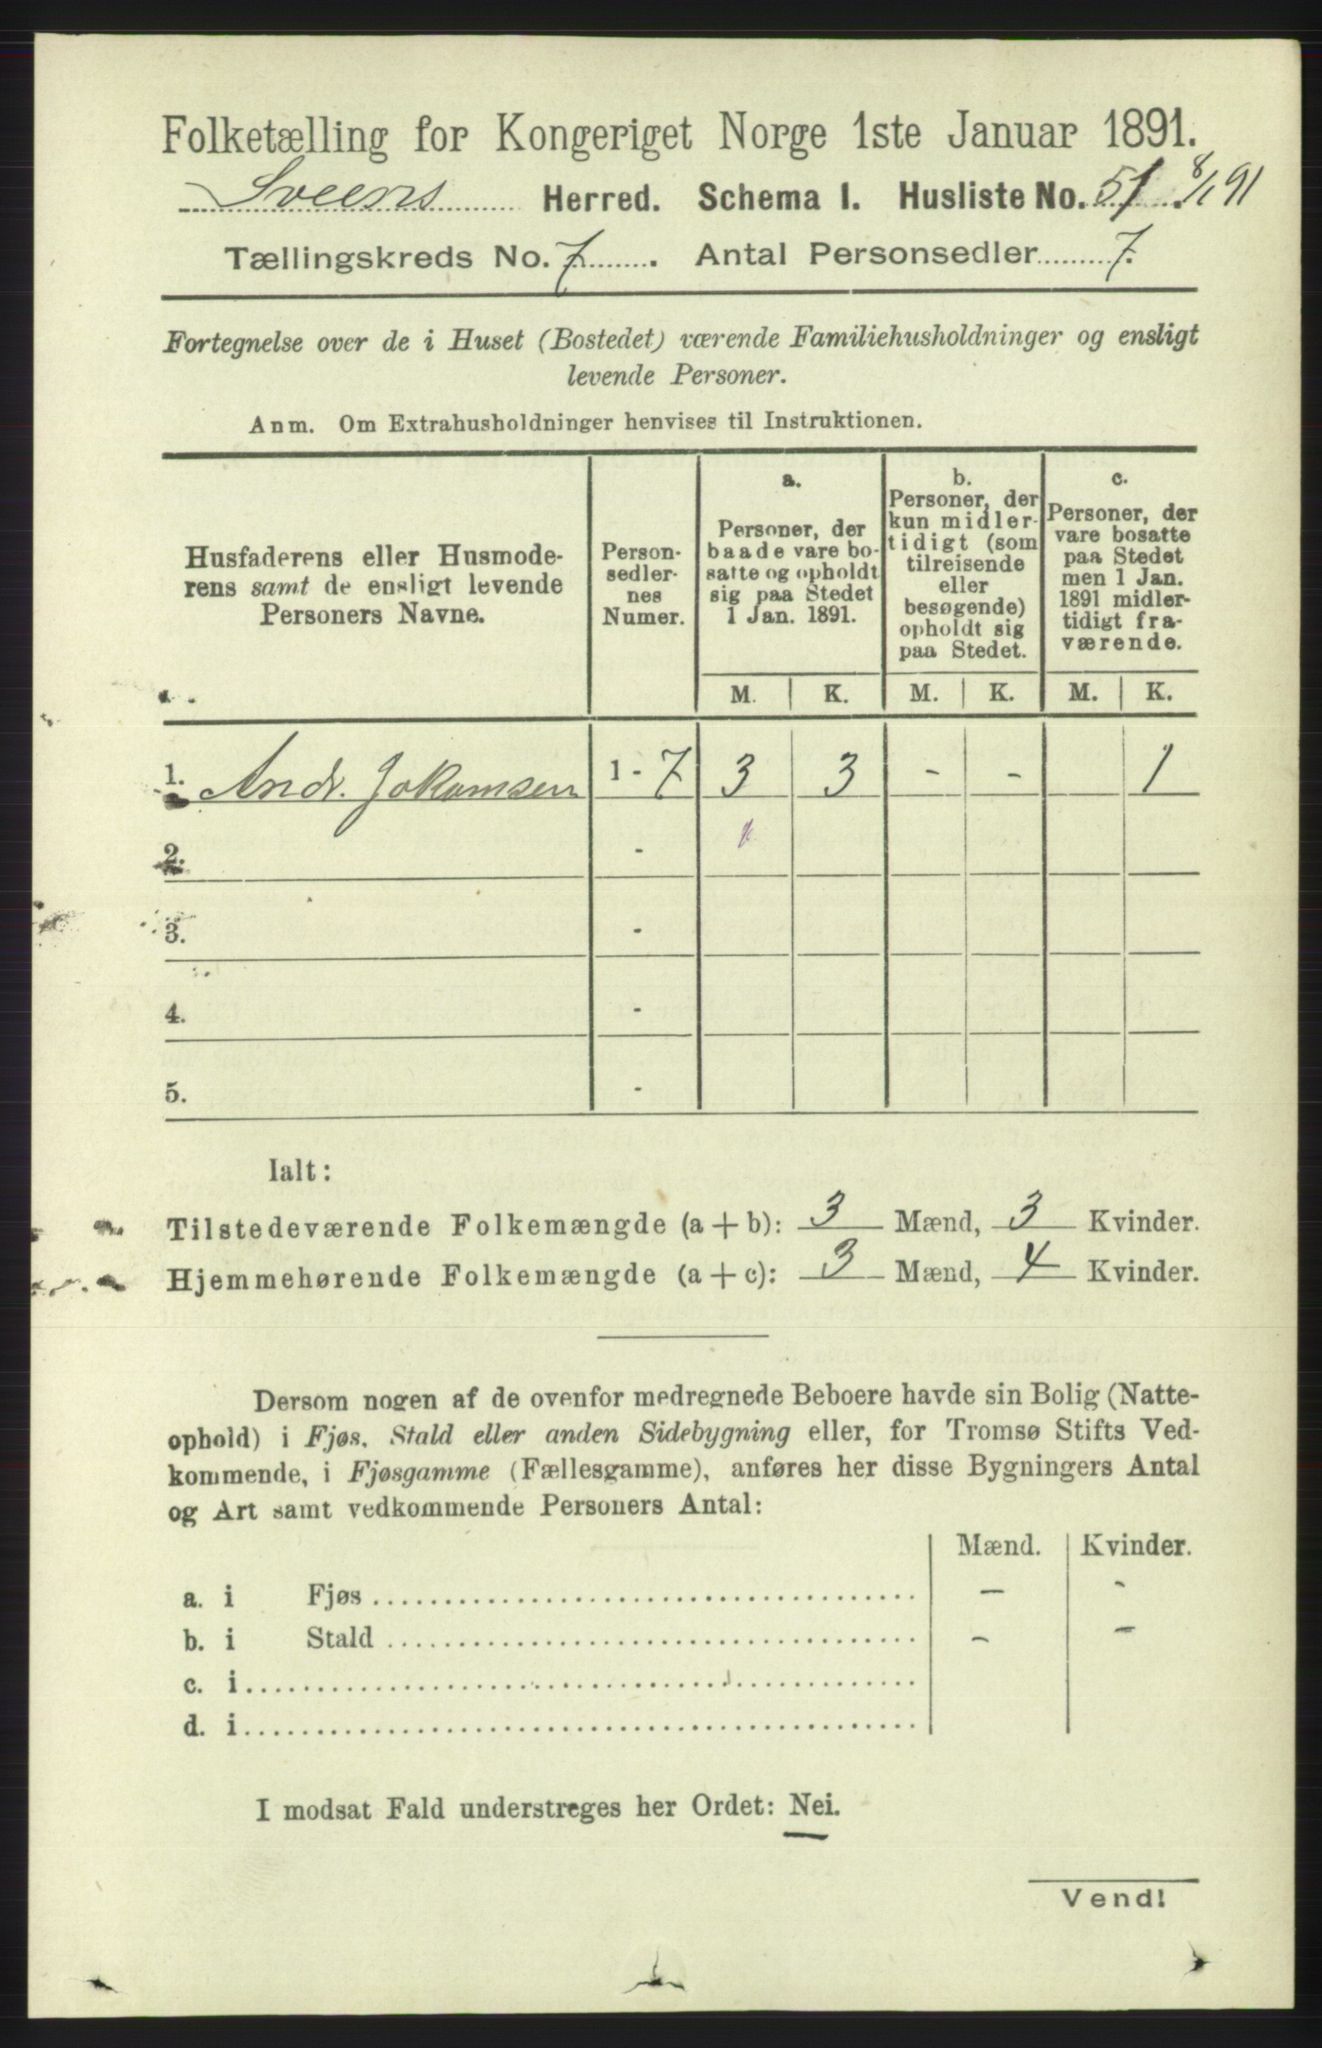 Folketælling for Kongeriget Norge 1ste Januar 1891.
Sveens Herred. Schema I. Husliste No. 51. 8/1 91
Tællingskreds No. 7. Antal Personsedler 7.
Fortegnelse over de i Huset (Bostedet) værende Familiehusholdninger og ensligt
levende Personer.
Anm. Om Extrahusholdninger henvises til Instruktionen.
Husfaderens eller Husmode-
rens samt de ensligt levende
Personers Navne.
Person-
sedler-
nes
Numer.
a.
Personer, der
baade vare bo-
satte og opholdt
sig paa Stedet
1 Jan. 1891.
b.
Personer, der
kun midler-
tidigt (som
tilreisende
eller
besøgende)
opholdt sig
paa Stedet.
c.
Personer, der
vare bosatte
paa Stedet
men 1 Jan.
1891 midler-
tidigt fra-
værende.
M. K. M. K. M. K.
1. Andr. Jokamsen 1 - 7 3 3 - - 1
2. -
3. -
4. -
5. -
Ialt:
Tilstedeværende Folkemængde (a + b): 3 Mænd, 3 Kvinder.
Hjemmehørende Folkemængde (a + c): 3 Mænd, 4 Kvinder.
Dersom nogen af de ovenfor medregnede Beboere havde sin Bolig (Natte-
ophold) i Fjøs, Stald eller anden Sidebygning eller, for Tromsø Stifts Ved-
kommende, i Fjøsgamme (Fællesgamme), anføres her disse Bygningers Antal
og Art samt vedkommende Personers Antal:
Mænd. Kvinder.
a. i Fjøs - -
b. i Stald - -
c. i
d. i
I modsat Fald understreges her Ordet: Nei.
Vend!